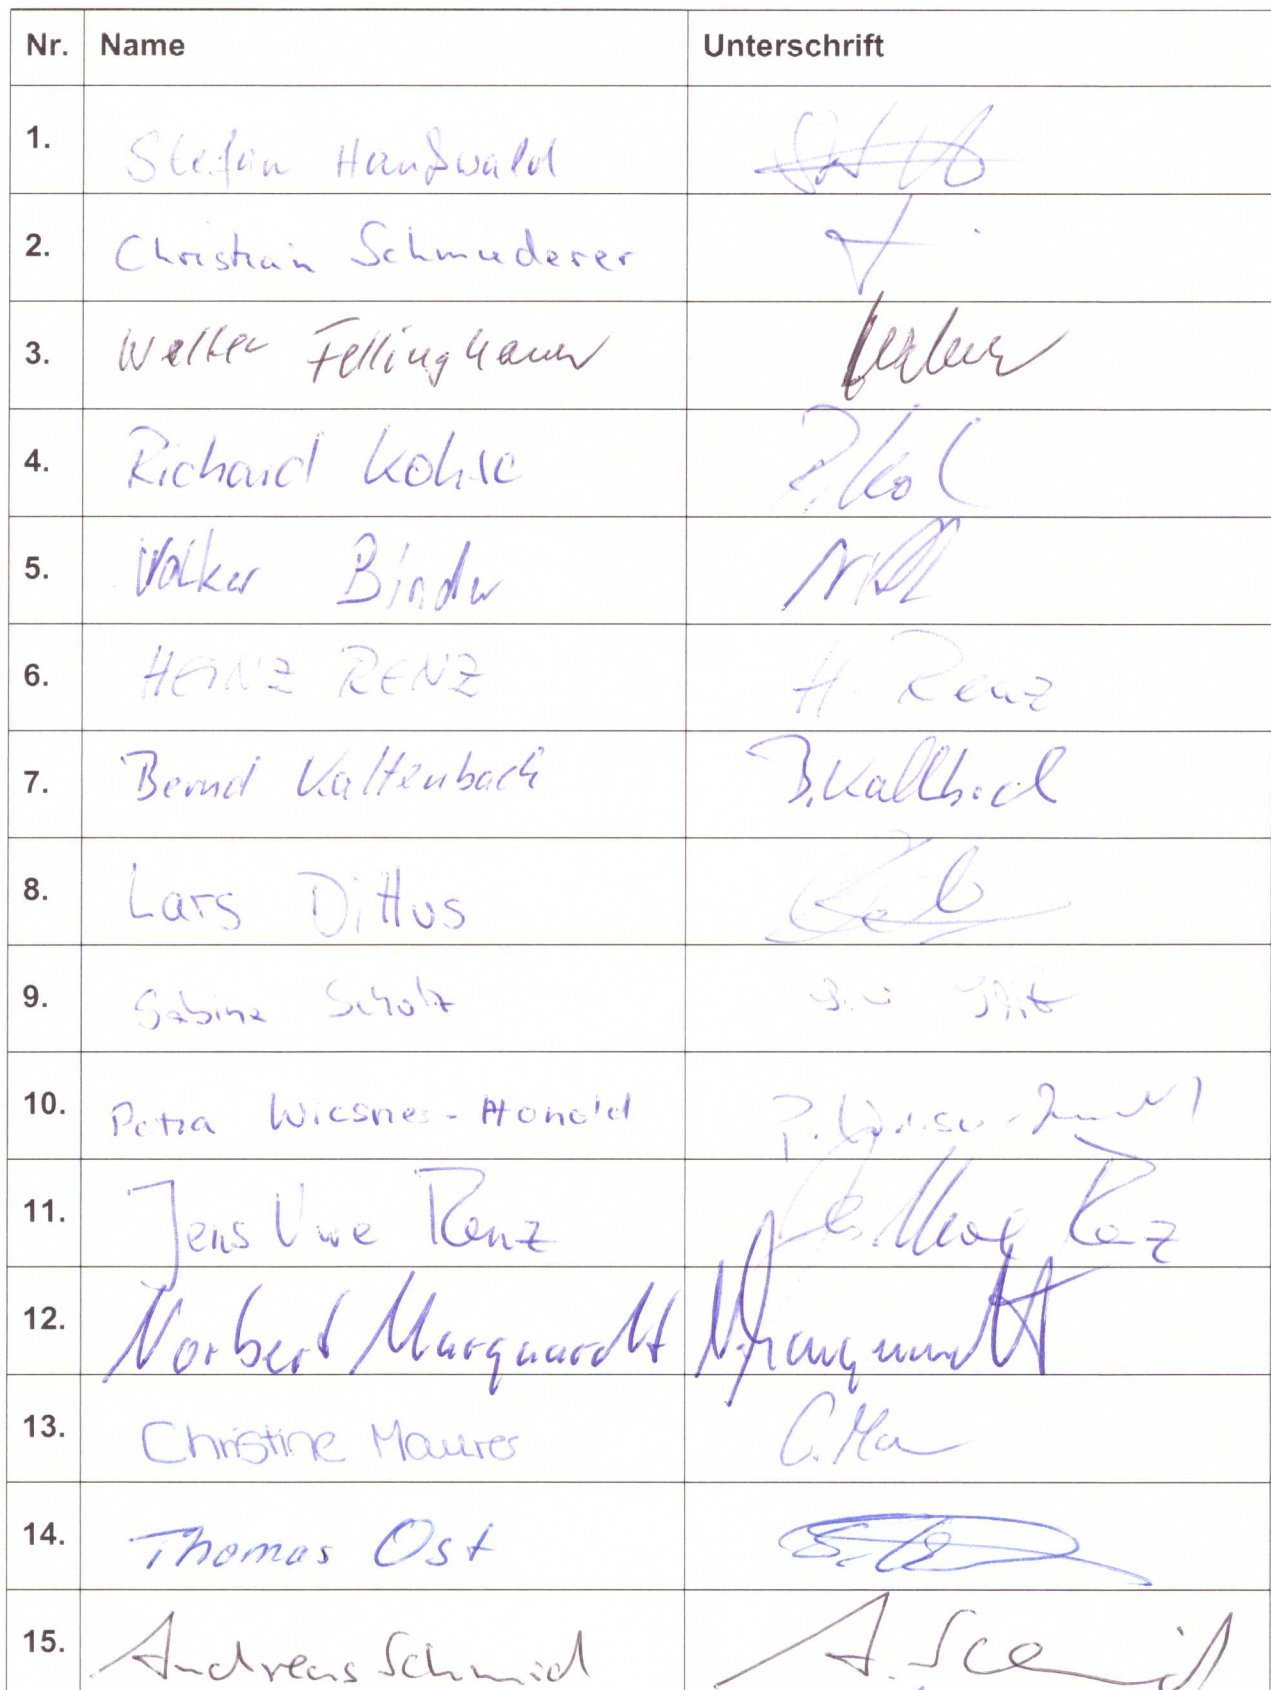 Nr. Name Unterschrift
1. Stefan Hanßwald
2. Christian Schmiederer
3. Walter Fellinghauer
4. Richard Kohse
5. Volker Binder
6. HEINZ RENZ H. Renz
7. Bernd Kaltenbach B. Kaltb
8. Lars Dittus
9. Sabine Scholz
10. Petra Wiesner-Honold
11. Jens Uwe Renz Jens Uwe Renz
12. Norbert Marquardt N. Marquardt
13. Christine Maurer C. Ma
14. Thomas Ost
15. Andreas Schmid A. Schmid